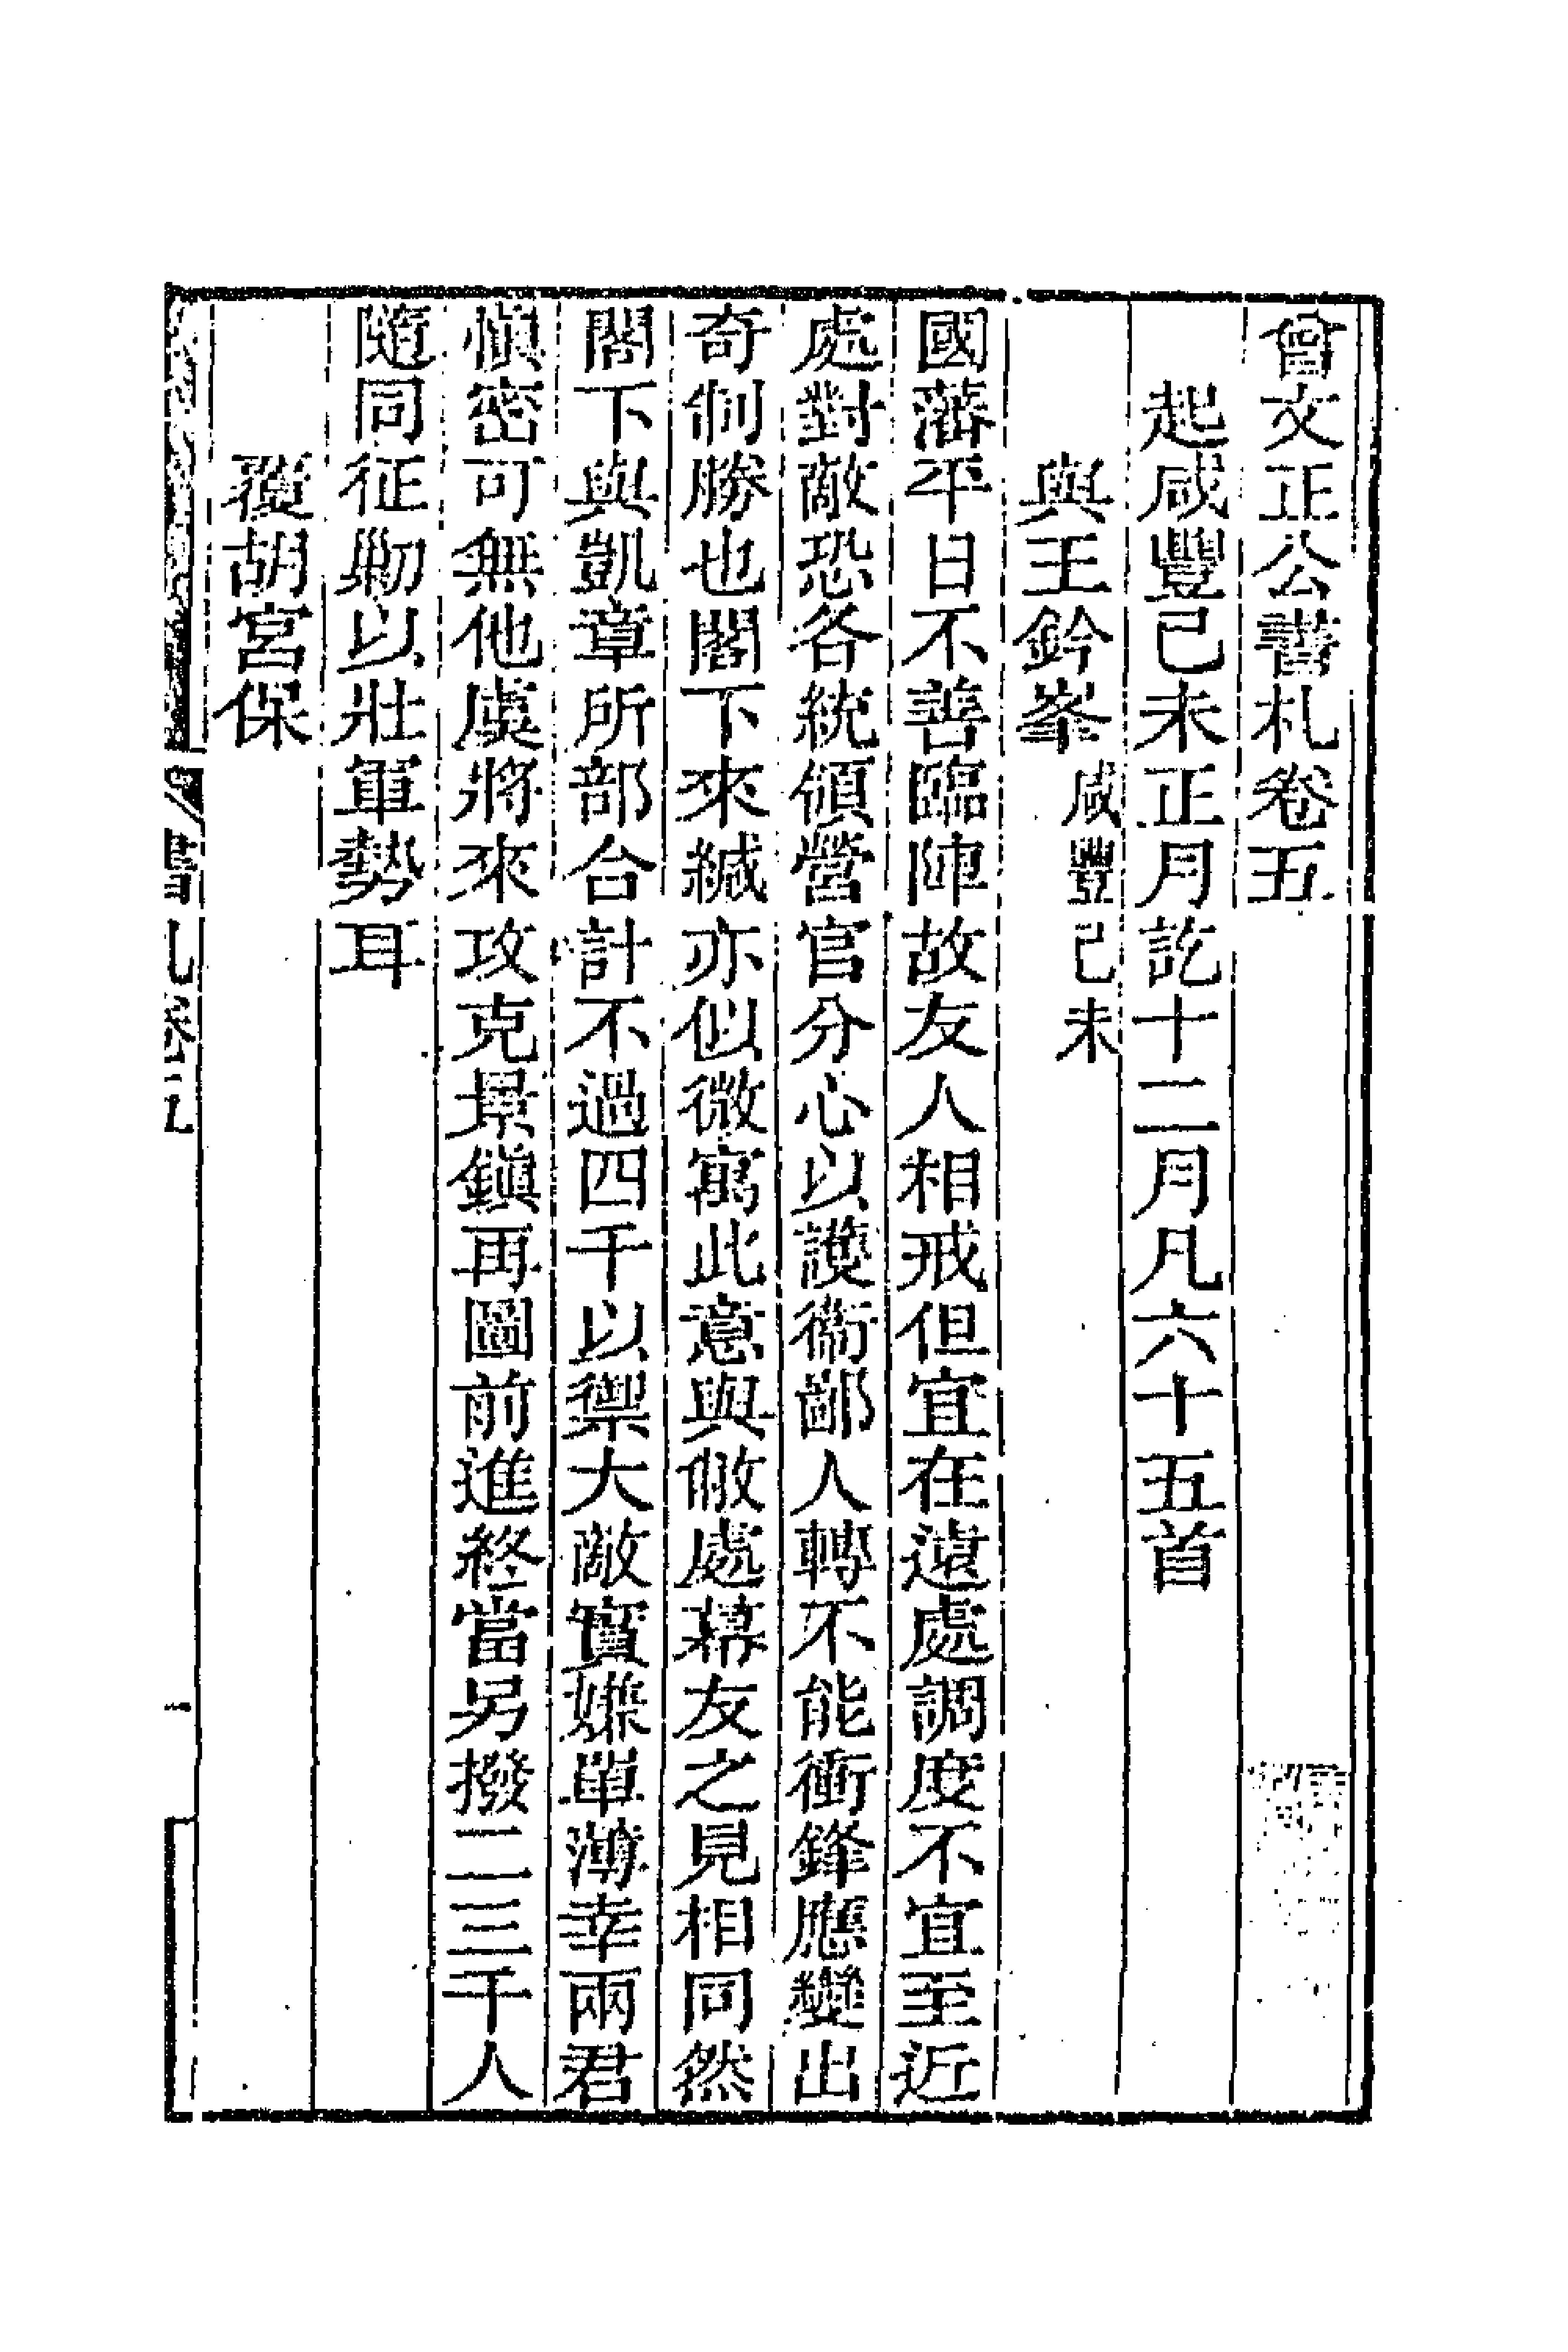 曾文正公書札卷五
起咸豐己未正月訖十二月凡六十五首
與王鈐峯咸豐己未
國藩平日不善臨陣故友人相戒但宜在遠處調度不宜至近
處對敵恐各統領營官分心以護衞鄙人轉不能衝鋒應變出
奇制勝也閣下來緘亦似微寓此意與敝處幕友之見相同然
閣下與凱章所部合計不過四千以禦大敵實嫌單薄幸兩君
愼密可無他虞將來攻克景鎭再圖前進終當另撥二三千人
隨同征勦以壯軍勢耳
覆胡宮保
書札卷五
一